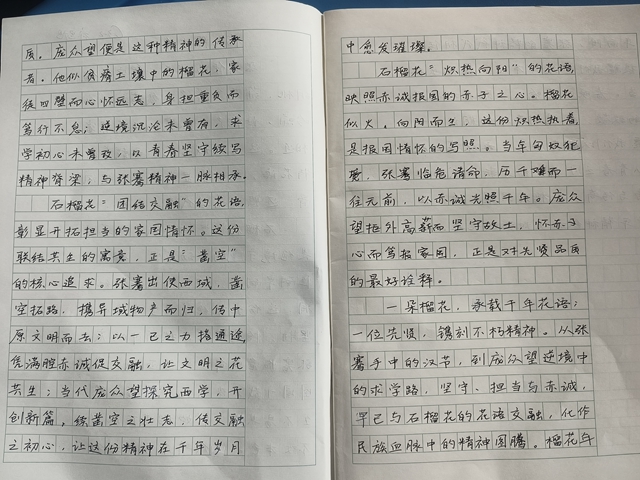 质。庞众望便是这种精神的传承
者。他似贫瘠土壤中的榴花，家
徒四壁而心怀远志，身担重负而
笃行不怠；逆境沉沦未曾有，求
学初心未曾改，以青春坚守续写
精神脊梁，与张骞精神一脉相承。
石榴花“团结交融”的花语，
彰显开拓担当的家国情怀。这份
联结共生的寓意，正是“凿空”
的核心追求。张骞出使西域，凿
空拓路，携异域物产而归，传中
原文明而去；以一己之力搭通途，
凭满腔赤诚促交融，让文明之花
共生；当代庞众望探究西学，开
创新篇，续凿空之壮志，传交融
之初心，让这份精神在千年岁月
中愈发璀璨。
石榴花“炽热向阳”的花语，
映照赤诚报国的赤子之心。榴花
似火，向阳而生，这份炽热执着，
是报国情怀的写照。当年匈奴犯
境，张骞临危请命，历千难而一
往无前，以赤诚光照千年。庞众
望拒外高薪而坚守故土，怀赤子
心而笃报家园，正是对先贤品质
的最好诠释。
一朵榴花，承载千年花语；
一位先贤，镌刻不朽精神。从张
骞手中的汉节，到庞众望逆境中
的求学路，坚守、担当与赤诚，
早已与石榴花的花语交融，化作
民族血脉中的精神图腾。榴花年